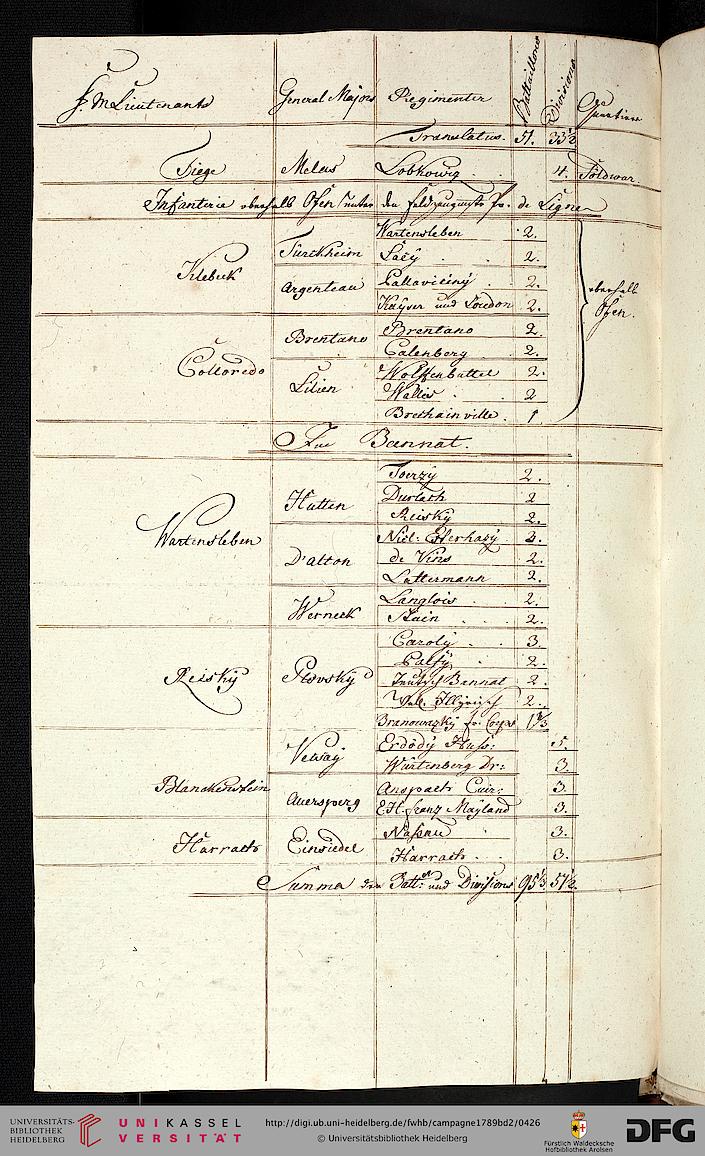 F. M Lieutenants General Majors Regimenter Battaillons Divisions Quartiere
Translatus. 51. 33½
Fiege Melas Lobkowiz 4. Földwar
Infanterie oberhalb Ofen unter den de Ligne
Klebeck Türckheim Wartensleben 2.
Lacy 2.
Argenteau Pallavicini 2.
Kayser und Loudon 2.
oberhalb Ofen.
Colloredo Brentano Brentano 2.
Calenberg 2.
Lilien Wolffenbuttel 2.
Wallis 2
Brechainville 1
Im Bannat.
Wartensleben Hutten Toerzy 2.
Durlach 2
Reisky 2.
D'alton Nicl: Esterhasy 2.
de Vins 2.
Lattermann 2.
Werneck Langlois 2.
Stain 2.
Reisky Caroly 3.
Palfy 2.
Teutsch Bannat 2.
Wal. Illyrisch 2.
Branowazky fr: Corps 1⅓
Blanckenstein Vecsay Erdödy Huss: 5.
Würtenberg Dr: 3.
Auersperg Anspach Cuir: 3.
E. H. Franz Mayland 3.
Harrach Einsiedel Nassau 3.
Harrach 3.
Summa den Batt: und Divisions 95⅓. 57½.
UNIVERSITÄTS-
BIBLIOTHEK
HEIDELBERG
UNIKASSEL
VERSITÄT
http://digi.ub.uni-heidelberg.de/fwhb/campagne1789bd2/0426
© Universitätsbibliothek Heidelberg
Fürstlich Waldecksche
Hofbibliothek Arolsen
DFG